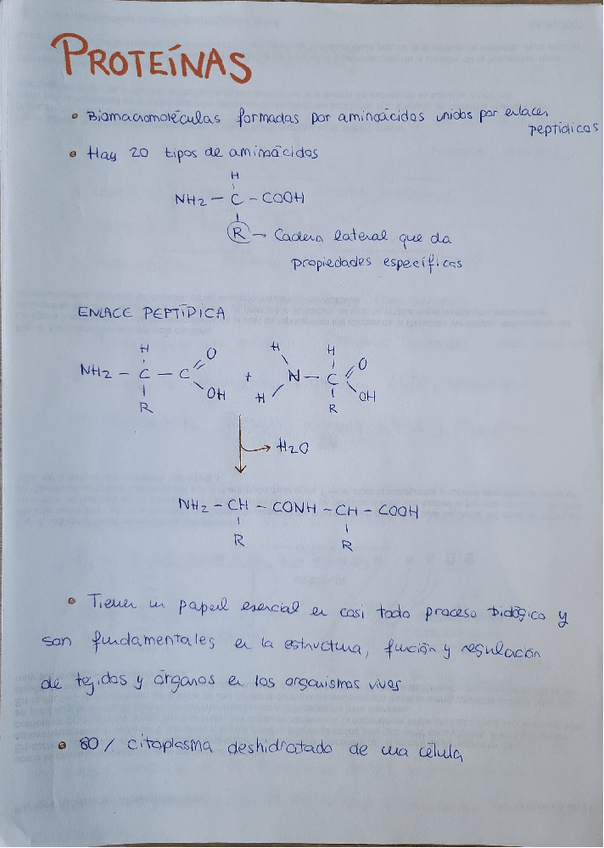 PROTEÍNAS
• Biomacromoléculas formadas por aminoácidos unidos por enlaces
peptídicos
• Hay 20 tipos de aminoácidos
H
NH2 – C – COOH
R → Cadena lateral que da
propiedades específicas
ENLACE PEPTÍDICA
H O H H O
NH2 – C – C + N – C
R OH H R OH
H2O
NH2 – CH – CONH – CH – COOH
R R
• Tienen un papel esencial en casi todo proceso biológico y
son fundamentales en la estructura, función y regulación
de tejidos y órganos en los organismos vivos
• 80% citoplasma deshidratado de una célula